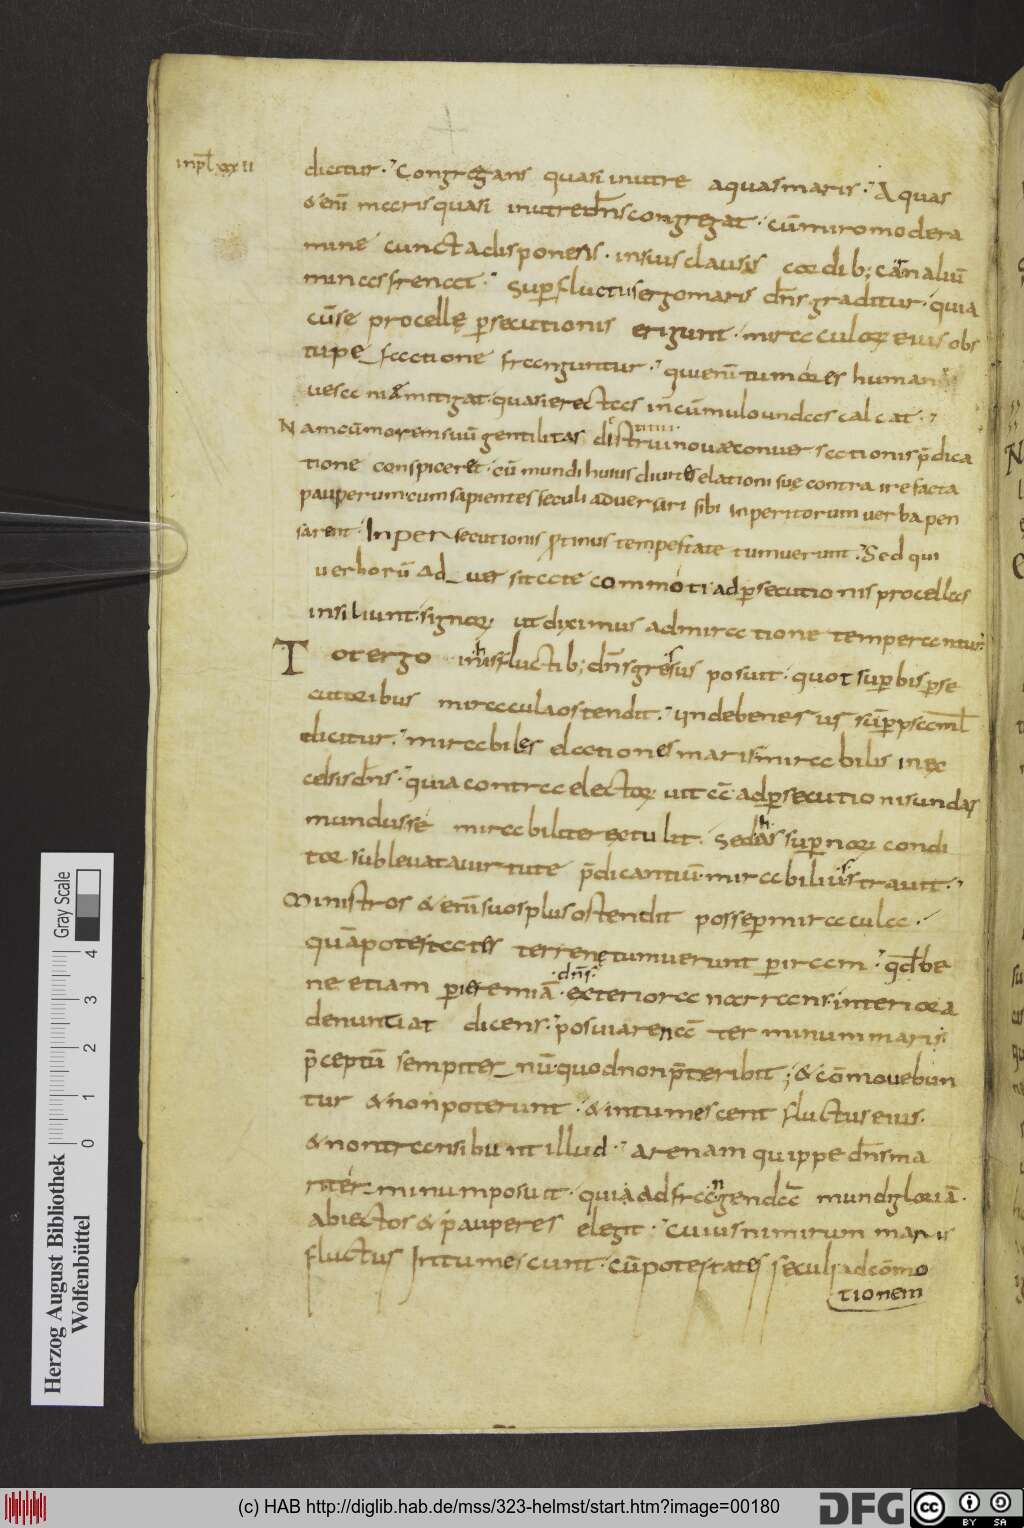 inpł xxxii
dicitur · Congregans quasi inutre aquasmaris · Aquas
& enī maris quasi inutredn̄s congregat · cū miro modera
mine cuncta disponens · insuis clausis cordib; carnaliū
minas frenat · Sup fluctus ergo maris dn̄s graditur · quia
cū se procellę psecutionis erigunt · miraculoꝝ eius obs
tupefactione franguntur · quienī tumores human
uesaniā mitigat · quasi erectas in cūmulo undas calcat ·
Nam cū morem suū gentilitas distrui nouæ conuersationis p̄dica
tione conspiceret · cū mundi huius diuites elationi suę contraire facta
pauperum · cum sapientes seculi aduersari sibi inperitorum uerba pen
sarent · In persecutionis protinus tempestate tumuerunt · Sed qui
uerborū aduersitate commoti ad psecutionis procellas
insiliunt · signoꝝ ut diximus admiratione temperantur ·
Tot ergo in his fluctib; dn̄s gressus posuit · quot supbis pse
cutoribus miracula ostendit · unde bene
dicitur · mirabiles elationes maris mirabilis in ex
celsis dn̄s · quia contra electoꝝ uitā ad psecutionis undas
mundus se mirabiliter extulit · Sed has supnoꝝ condi
tor sublevata uirtute p̄dicantiū · mirabilius strauit ·
Ministros & enī suos plus ostendit posse per miracula ·
quā potestates terrenę tumuerunt p iram · qd̄ be
·dn̄s·
ne etiam p ieremiā · exteriora narrans · interiora
denuntiat dicens · posui arenā terminum maris
p̄ceptū sempiternū · quod non p̄teribit ; & cōmouebun
tur & non poterunt · & intumescent fluctus eius ·
& non transibunt illud · arenam quippe dn̄s ma
ri terminum posuit · quia ad frangendā mundi gloriā ·
abiectos & pauperes elegit · Cuius nimirum maris
fluctus intumescunt · cū potestates seculi ad cōmo
tionem
Gray Scale
4
3
2
1
0
Herzog August Bibliothek
Wolfenbüttel
(c) HAB http://diglib.hab.de/mss/323-helmst/start.htm?image=00180
DFG
cc
BY SA